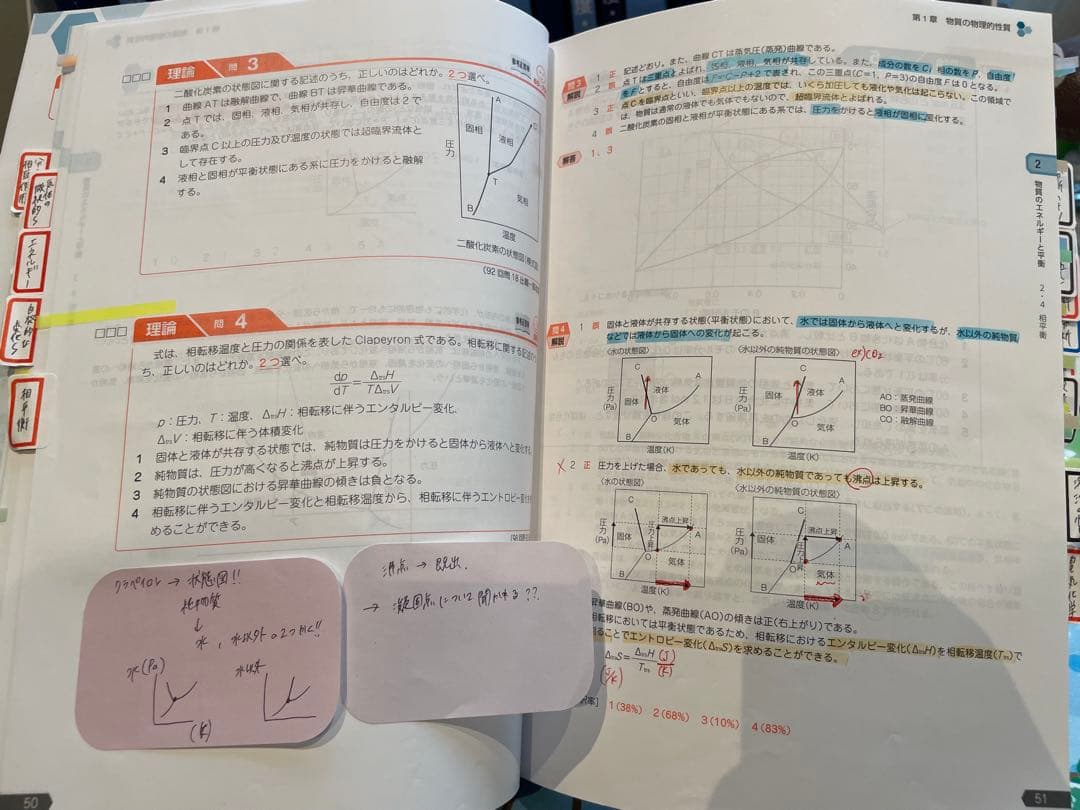 理論 問 3
二酸化炭素の状態図に関する記述のうち、正しいのはどれか。2つ選べ。
1 曲線 AT は融解曲線で、曲線 BT は昇華曲線である。
2 点 T では、固相、液相、気相が共存し、自由度は 2 で
ある。
3 臨界点 C 以上の圧力及び温度の状態では超臨界流体と
して存在する。
4 液相と固相が平衡状態にある系に圧力をかけると融解
する。
圧力
A
固相
液相
C
T
気相
B
温度
二酸化炭素の状態図(模式図
理論 問 4
式は、相転移温度と圧力の関係を表した Clapeyron 式である。相転移に関する記述のう
ち、正しいのはどれか。2つ選べ。
dp/dT = ΔtrsH/TΔtrsV
p:圧力、T:温度、ΔtrsH:相転移に伴うエンタルピー変化、
ΔtrsV:相転移に伴う体積変化
1 固体と液体が共存する状態では、純物質は圧力をかけると固体から液体へと変化する
2 純物質は、圧力が高くなると沸点が上昇する。
3 純物質の状態図における昇華曲線の傾きは負となる。
4 相転移に伴うエンタルピー変化と相転移温度から、相転移に伴うエントロピー変化
めることができる。
クラペイロン → 状態図!!
純物質
↓
水, 水以外の2つだけ!!
水 (Pa)
水以外
(K)
沸点 → 既出.
→ 凝固点について聞かれる??
50
第1章 物質の物理的性質
問3
解説
1 正 記述どおり。また、曲線 CT は蒸気圧(蒸発)曲線である。
2 誤 点 T は三重点とよばれ、固相、液相、気相が共存している。また、成分の数を C、相の数を P、自由度
を F とすると、自由度は F=C-P+2 で表され、この三重点(C=1、P=3)の自由度 F は 0 となる。
3 正 点 C を臨界点といい、臨界点以上の温度では、いくら加圧しても液化や気化は起こらない。この領域で
は、物質は通常の液体でも気体でもないので、超臨界流体とよばれる。
4 誤 二酸化炭素の固相と液相が平衡状態にある系では、圧力をかけると液相が固相に変化する。
解答 1、3
2
物質のエネルギーと平衡
2・4 相平衡
問4
解説
1 誤 固体と液体が共存する状態(平衡状態)において、水では固体から液体へと変化するが、水以外の純物質
などでは液体から固体への変化が起こる。
〈水の状態図〉
〈水以外の純物質の状態図〉 ex)CO₂
圧力(Pa) C A 固体 液体 O 気体 B 温度(K)
圧力(Pa) C A 固体 液体 O 気体 B 温度(K)
AO:蒸発曲線
BO:昇華曲線
CO:融解曲線
× 2 正 圧力を上げた場合、水であっても、水以外の純物質であっても沸点は上昇する。
〈水の状態図〉
〈水以外の純物質の状態図〉
圧力(Pa) C 沸点上昇 固体 圧力上昇 A O 気体 B 温度(K)
圧力(Pa) C 沸点上昇 固体 A O 気体 B 温度(K)
昇華曲線(BO)や、蒸発曲線(AO)の傾きは正(右上がり)である。
相転移においては平衡状態であるため、相転移におけるエンタルピー変化(ΔtrsH)を相転移温度(Ttrs)で
ることでエントロピー変化(ΔtrsS)を求めることができる。
ΔtrsS = ΔtrsH (J)/Ttrs (K)
(J/K)
1(38%) 2(68%) 3(10%) 4(83%)
51
エネルギー
相平衡